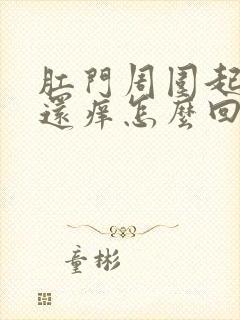 肛門周圍起
還痒怎麼回
童彬